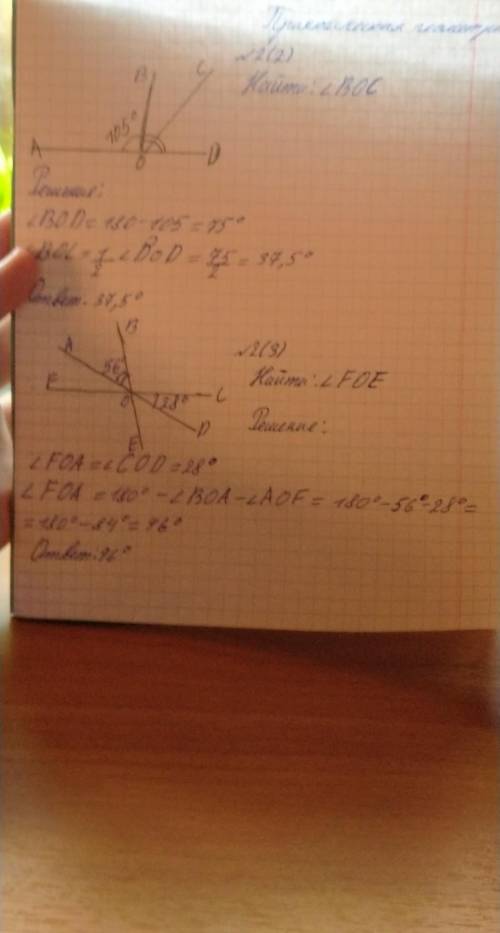 Практическая геометр
№2(2)
Найти: ∠BOC
B C
105°
A O D
Решение:
∠BOD = 180 - 105 = 75°
∠BOC = 1/2 ∠BOD = 75/2 = 37,5°
Ответ: 37,5°
B
A 56°
F O C
28°
E D
№2(3)
Найти: ∠FOE
Решение:
∠FOA = ∠COD = 28°
∠FOA = 180° - ∠BOA - ∠AOF = 180° - 56° - 28° =
= 180° - 84° = 96°
Ответ: 96°